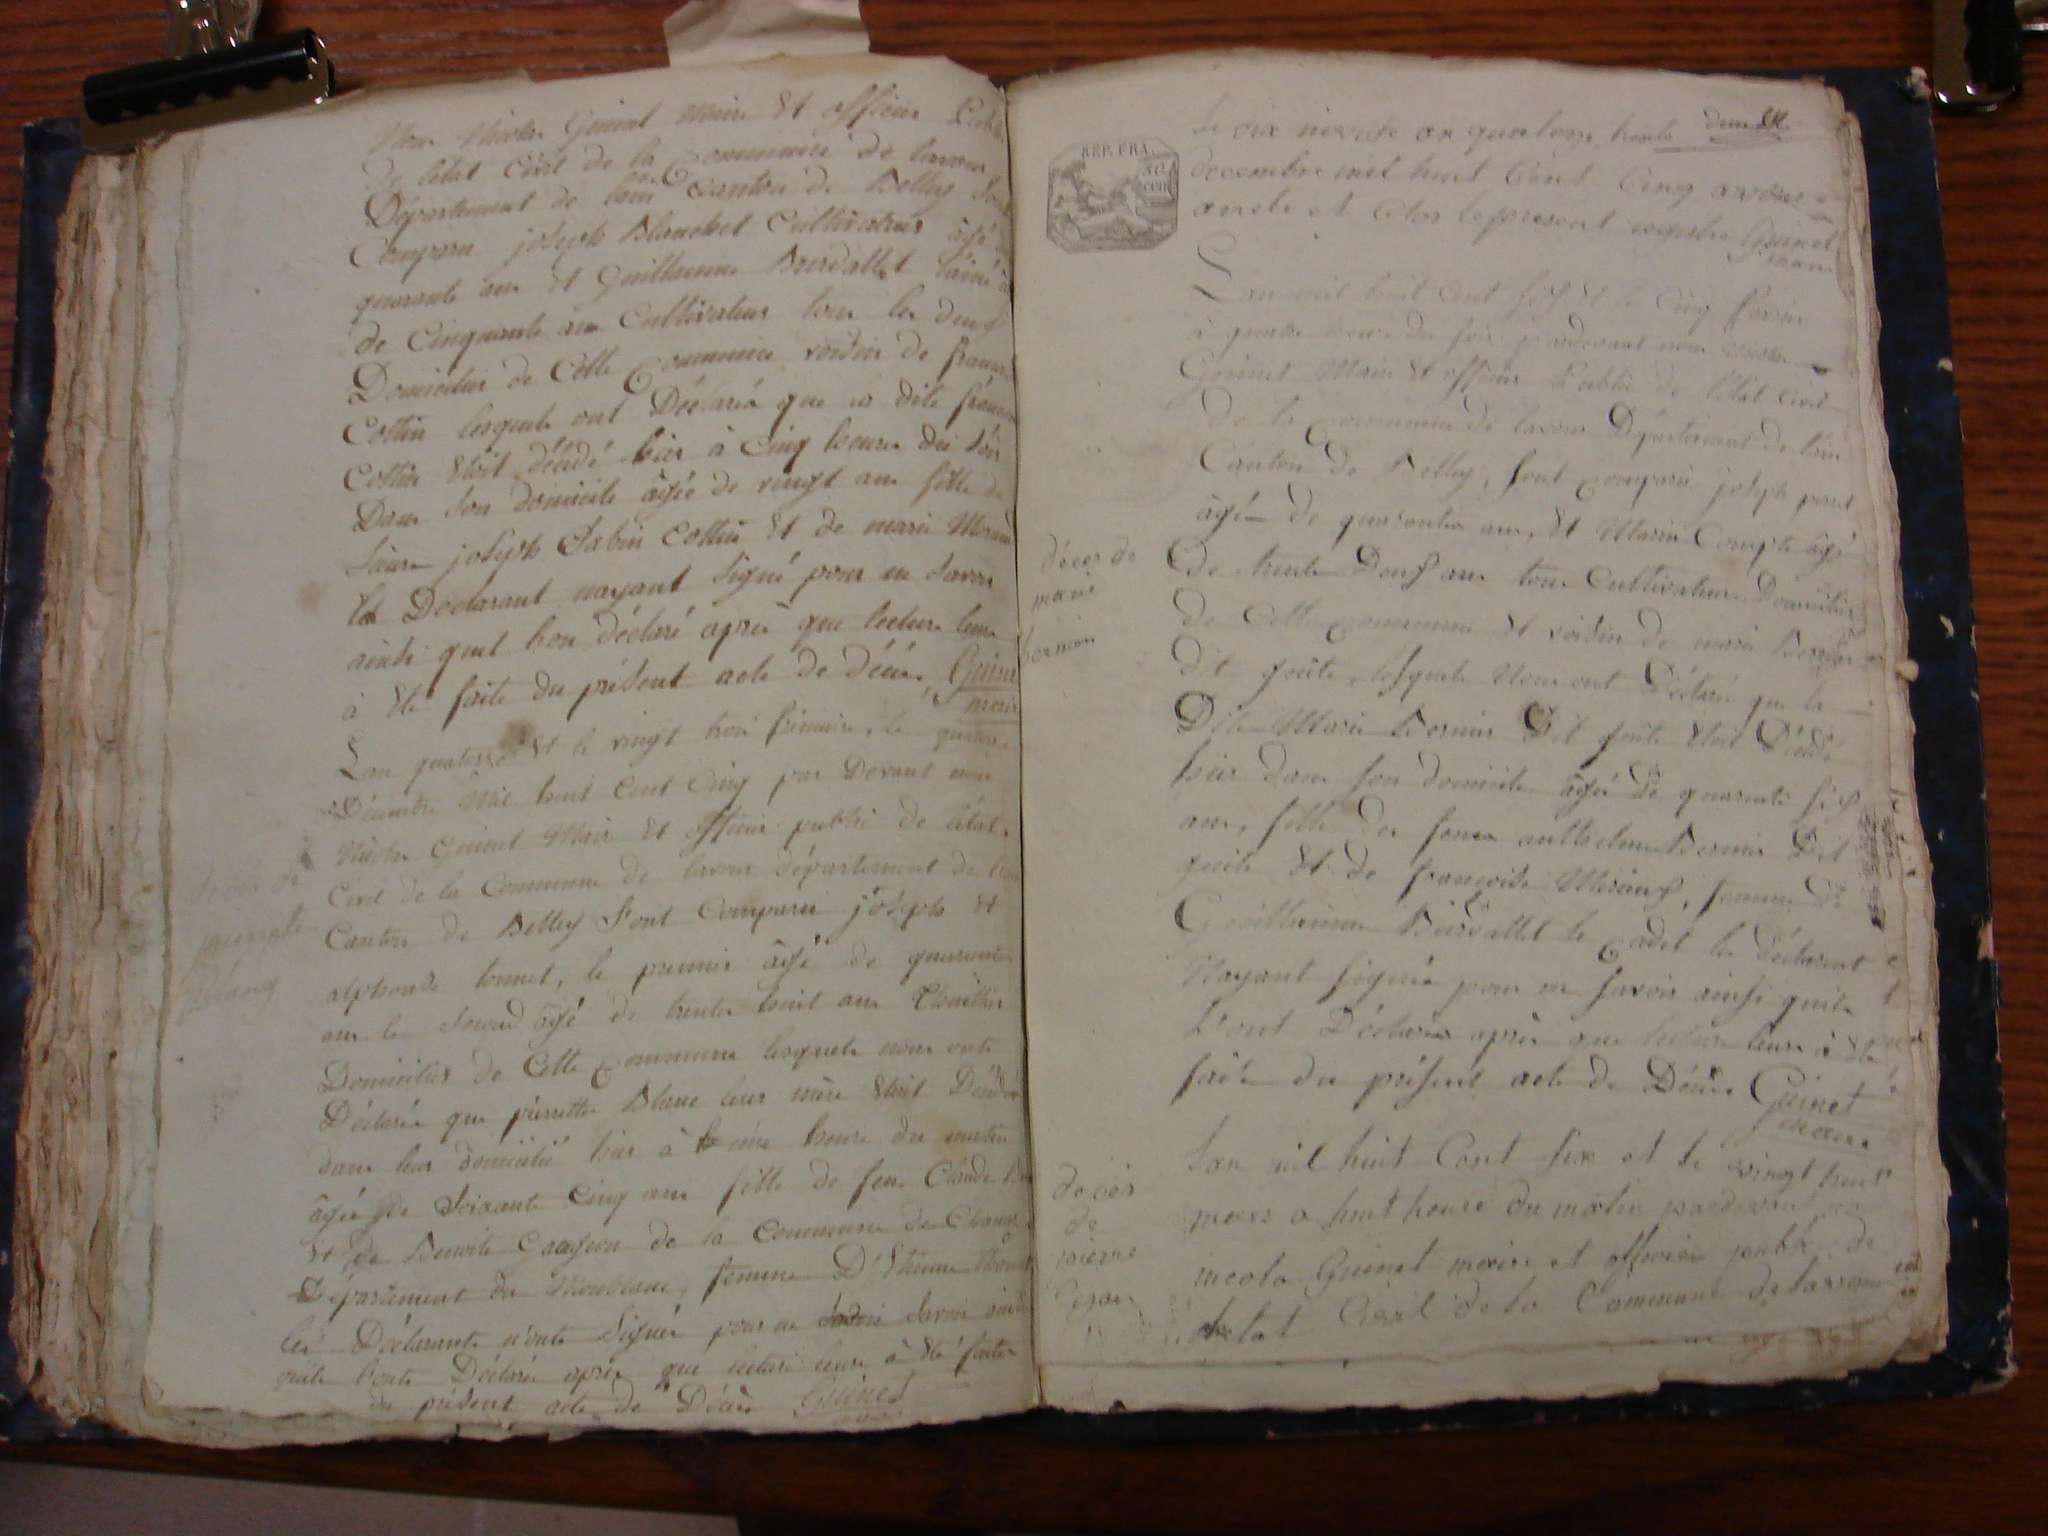 Nous Nicolas Guinet Maire Et officier Public
de l'état Civil de la Commune de lavour
Département de l'ain Canton de Belley Sont
Comparu joseph Blanchet Cultivateur âgé
quarante ans Et Guillaume Burdallet l'âiné
de Cinquante ans Cultivateur tous les deux
Domicilier de Cette Commune voisin de françoise
Cottin lesquels ont Déclaré que la dite françoise
Cottin Etoit décédé hier à Cinq heures du soir
Dans son domicile âgée de vingt ans fille de
joseph Sabin Cottin Et de marie
Les Declarant nayant Signé pour ne Savoir
ainsi quil lon déclaré après que lecture leur
à Eté faite du présent acte de décès Guinet
maire
Lan quatorze Et le vingt trois frimaire, le quatorze
Décembre Mil huit Cent Cinq par Devant nous
Nicolas Guinet Maire Et officier public de l'état
Civil de la Commune de lavour département de l'ain
Canton de Belley Sont Comparu joseph Et
alphonse tonnet, le premier âgé de quarante
ans le Second âgé de trente huit ans
Domicilier de Cette Commune lesquels nous onts
Déclaré que pierrette Blanc leur mère Etoit Décédé
dans leur domicile hier à une heure du matin
âgée de Soixante Cinq ans fille de feu Claude
Et de Benoite de la Commune de
Département du Montblanc, femme D'Etienne
les Déclarants n'onts Signés pour ne Savoir ainsi
quils l'onts Déclaré après que lecture leur à Eté faite
du présent acte de Décès Guinet
décès de
pierrette
Blanc
Le dix nivose an quatorze trente
decembre mil huit Cent Cinq avons
areté et Clos le present registre Guinet
maire
REP. FRA.
Lan mil huit Cent six Et le Cinq
à quatre heures du soir pardevant nous Nicolas
Guinet Maire Et officier Public de l'état Civil
de la Commune de lavour Département de l'ain
Canton de Belley, sont Comparu joseph
âgé de quarante ans, Et Marin Compte âgé
de trente Deux ans tous Cultivateurs Domicilier
de Cette Commune Et voisin de marie Bernin
Dit goite, lesquels Nous ont Déclaré que la
Dite Marie Bernin Dit goite Etoit Décédé
hier dans son domicile âgée de quarante six
ans, fille de feu anthelme Bernin Dit
goite Et de françoise, femme de
Guillaume Burdallet le Cadet les déclarant
Nayant Signé pour ne Savoir ainsi quils
l'ont Déclaré après que lecture leur à Eté
faite du présent acte de Décès Guinet
maire
décès de
marie
bernin
Lan mil huit Cent six et le vingt huit
mars a huit heure du matin pardevant nous
nicola Guinet maire et officier public de
letat Civil de la Commune de lavour
décès
de
pierre